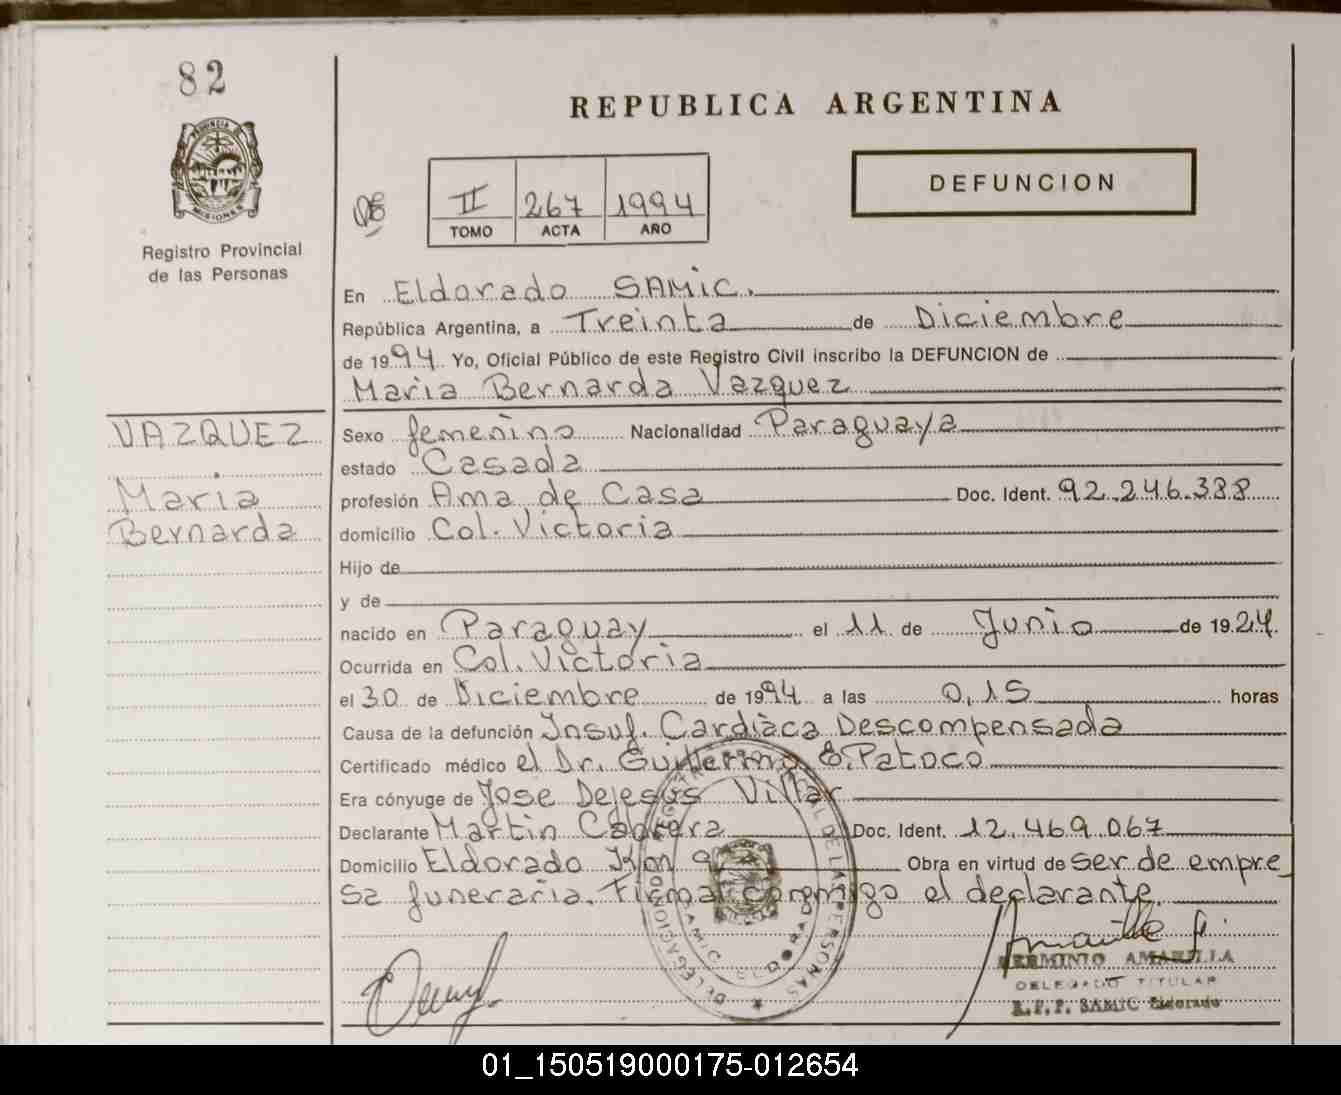 82
REPUBLICA ARGENTINA
PROVINCIA DE MISIONES
Registro Provincial
de las Personas
II 267 1994
TOMO ACTA AÑO
DEFUNCION
En Eldorado SAMIC.
República Argentina, a Treinta de Diciembre
de 1994 Yo, Oficial Público de este Registro Civil inscribo la DEFUNCION de
Maria Bernarda Vazquez
VAZQUEZ
Maria
Bernarda
Sexo femenino Nacionalidad Paraguaya
estado Casada
profesión Ama de Casa Doc. Ident. 92.246.388
domicilio Col. Victoria
Hijo de
y de
nacido en Paraguay el 11 de Junio de 1924.
Ocurrida en Col. Victoria
el 30 de Diciembre de 1994 a las 0,15 horas
Causa de la defunción Insuf. Cardiàca Descompensada
Certificado médico el Dr. Guillermo E. Patoco
Era cónyuge de Jose Dejesús Villar
Declarante Martin Cabrera Doc. Ident. 12.469.067
Domicilio Eldorado Km 9 Obra en virtud de ser de empre
sa funeraria. Firma conmigo el declarante.
DELEGACION REGISTRO PROVINCIAL DE LAS PERSONAS
SAMIC ELDORADO
HERMINIO AMARILLA
DELEGADO TITULAR
R.P.P. SAMIC Eldorado
01_150519000175-012654